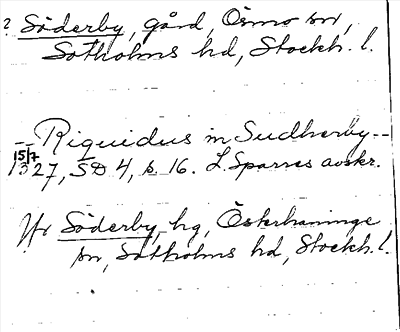 ? Söderby, gård, Ösmo sn,
Sotholms hd, Stockh. l.
-- Riguidus in Sudherby --
15/7
1327, SD 4, s. 16. L Sparres avskr.
Jfr Söderby, hg, Österhaninge
sn, Sotholms hd, Stockh. l.